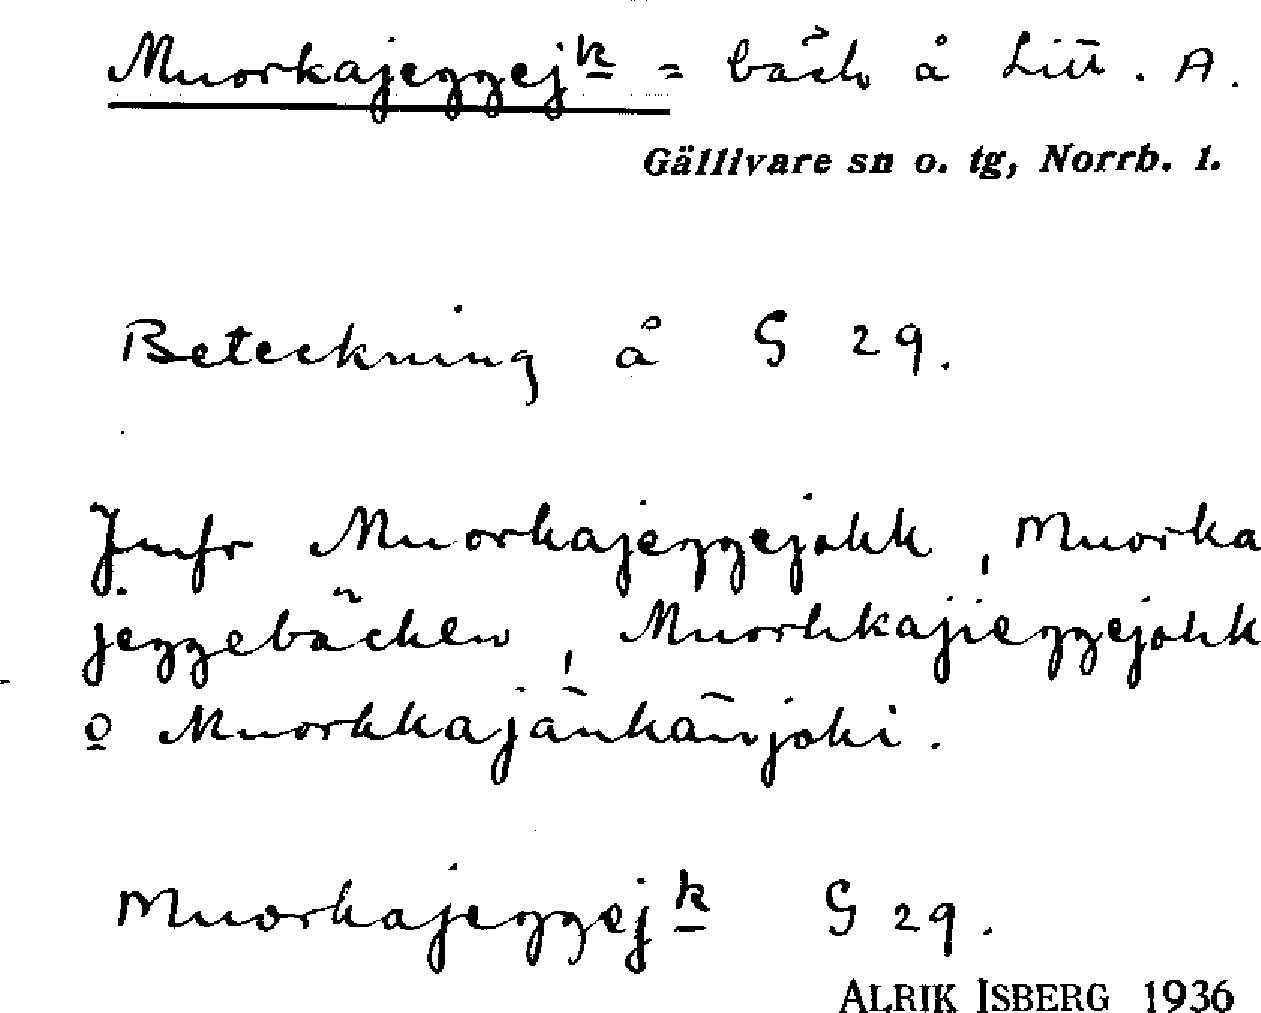 Muorkajeggejk = bäck å Litt. A.
Gällivare sn o. tg, Norrb. l.
Beteckning å G 29.
Jmfr Muorkajeggejokk, Muorka
jeggebäcken, Muorkkajieggejokk
o Muorkkajänkänjoki.
Muorkajeggejk G 29.
ALRIK ISBERG 1936